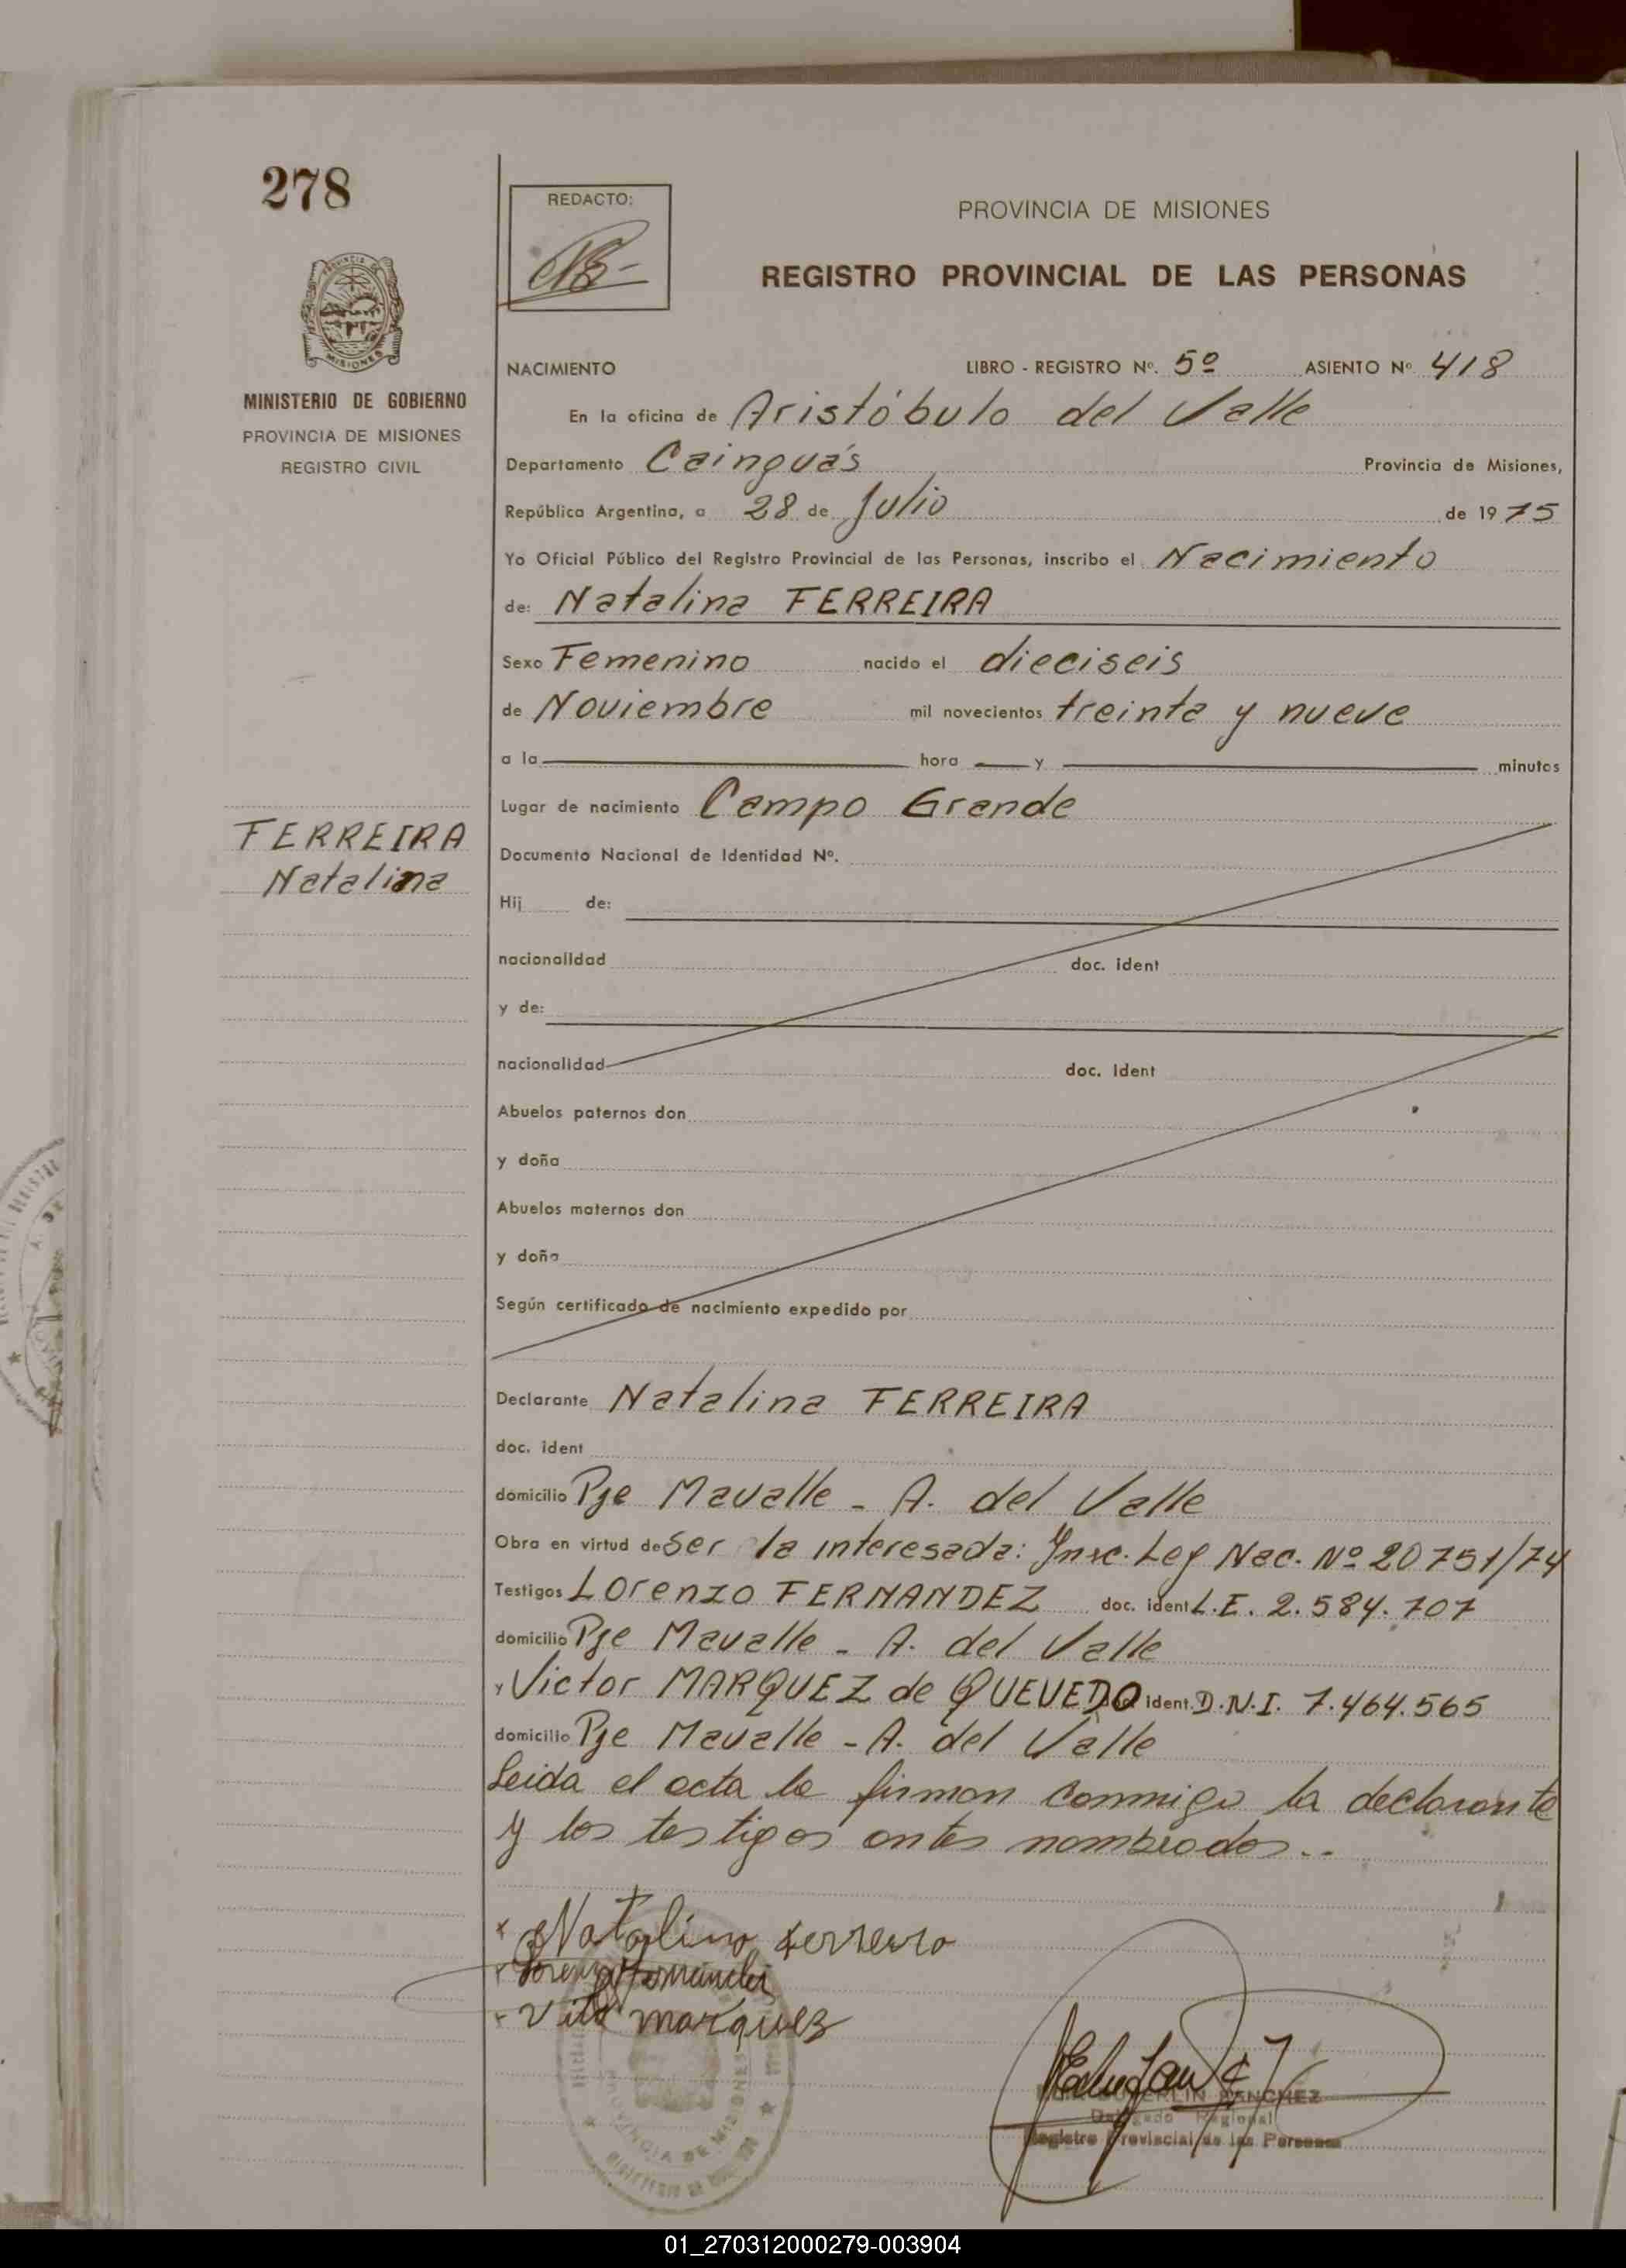 278
REDACTO:
PROVINCIA DE MISIONES
REGISTRO PROVINCIAL DE LAS PERSONAS
MINISTERIO DE GOBIERNO
PROVINCIA DE MISIONES
REGISTRO CIVIL
NACIMIENTO LIBRO - REGISTRO Nº. 5º ASIENTO Nº 418
En la oficina de Aristóbulo del Valle
Departamento Cainguás Provincia de Misiones,
República Argentina, a 28 de Julio de 1975
Yo Oficial Público del Registro Provincial de las Personas, inscribo el Nacimiento
de: Natalina FERREIRA
Sexo Femenino nacido el dieciseis
de Noviembre mil novecientos treinta y nueve
a la hora y minutos
Lugar de nacimiento Campo Grande
FERREIRA
Natalina
Documento Nacional de Identidad Nº.
Hij de:
nacionalidad doc. ident
y de:
nacionalidad doc. ident
Abuelos paternos don
y doña
Abuelos maternos don
y doña
Según certificado de nacimiento expedido por
Declarante Natalina FERREIRA
doc. ident
domicilio Pje Mavalle - A. del Valle
Obra en virtud de ser la interesada: Insc. Ley Nac. Nº 20751/74
Testigos Lorenzo FERNANDEZ doc. ident L.E. 2.584.707
domicilio Pje Mavalle - A. del Valle
y Victor MARQUEZ de QUEVEDO ident. D.N.I. 7.464.565
domicilio Pje Mavalle - A. del Valle
Leida el acta la firman conmigo la declarante
y los testigos antes nombrados..
Natalina Ferrera
Lorenzo Fernandez
marquez
SANCHEZ
Delegado Regional
Registro Provincial de las Personas
PROVINCIA DE MISIONES
01_270312000279-003904